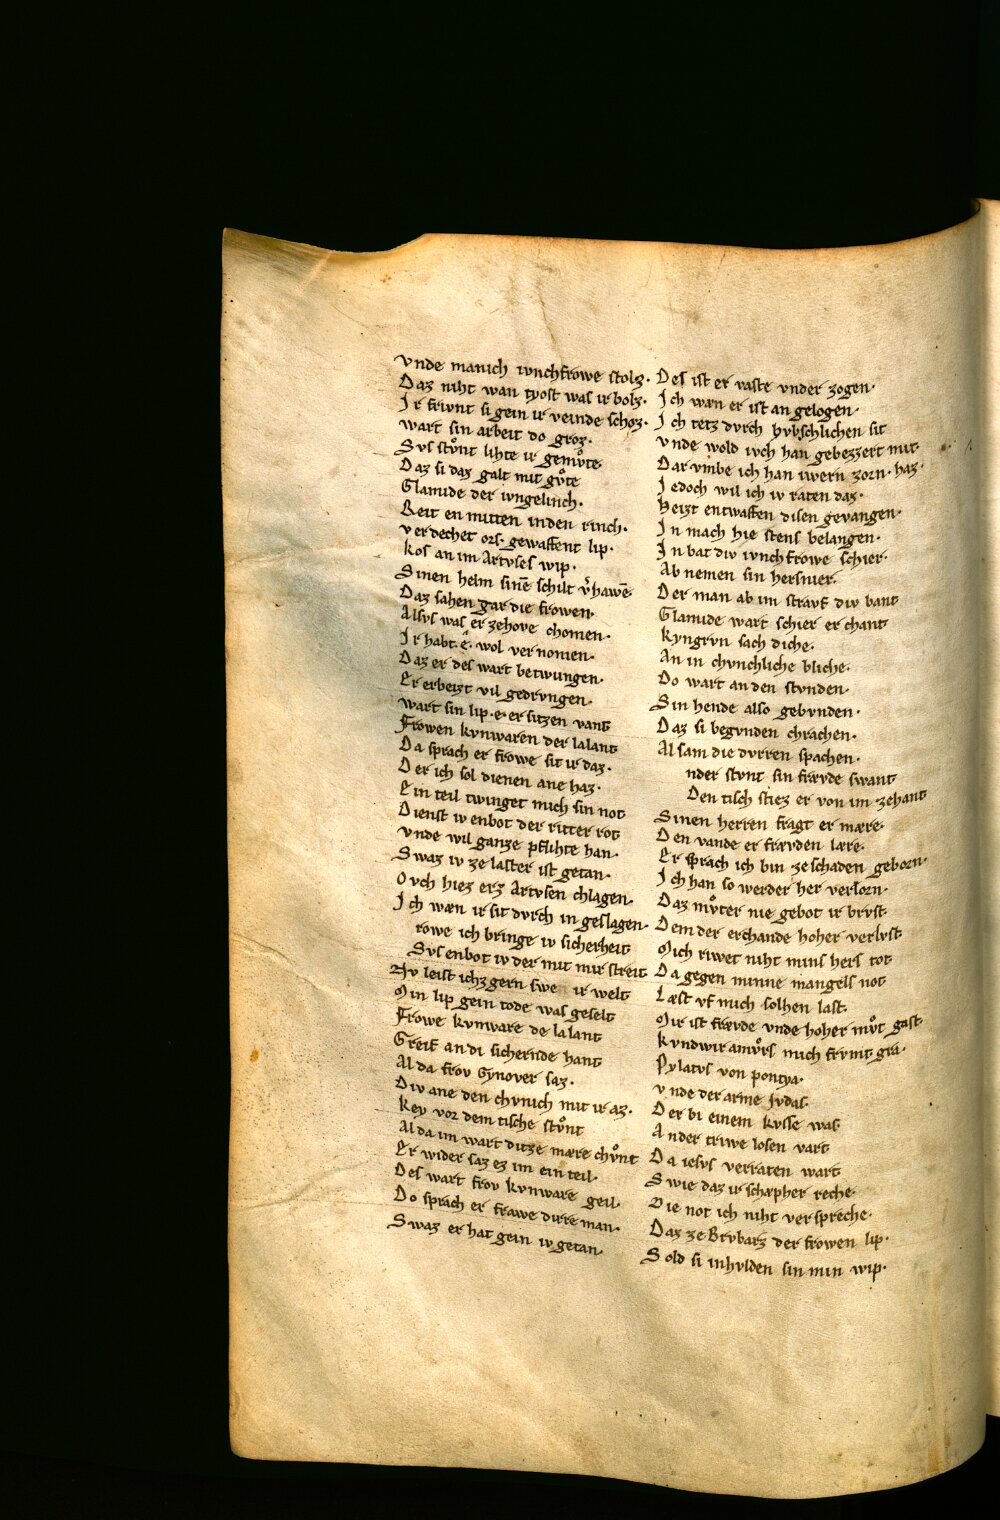 vnde manich ivnchfrowe stolz·
Daz niht wan tyost was ir bolz·
Ir frivnt si gein ir veinde schoz·
wart sin arbeit do groz·
Svs stvͦnt lihte ir gemvͦte·
Daz si daz galt mit gvͦte
Glamide der ivngelinch·
Reit en mitten inden rinch·
verdechet ors· gewaffent lip·
Kos an im Artvses wip·
Sinen helm sinē schilt vˀhawē·
Daz sahen gar die frowen·
Alsvs was er zehove chomen·
Ir habt· ê· wol vernomen·
Daz er des wart betwungen·
Er erbeizt vil gedrvngen·
wart sin lip· e· er sitzen vant
Frowen kvnwaren der lalant
Da sprach er frowe sit ir daz·
Der ich sol dienen ane haz·
Ein teil twinget mich sin not
Dienst iv enbot der ritter rot
vnde wil ganze pflihte han·
Swaz iv ze laster ist getan·
Ovch hiez erz Artvsen chlagen·
Ich wæn ir sit dvrch in geslagen·
rowe ich bringe iv sicherheit
Svs enbot iv der mit mir streit
Nv leist ichz gern swe ir welt
Min lip gein tode was geselt
Frowe kvnware de lalant
Greif an di sichernde hant
Al da frov Gynover saz·
Div ane den chvnich mit ir az·
Key vor dem tische stvͦnt
Al da im wart ditze mære chvͦnt
Er wider saz ez im ein teil·
Des wart frov kvnware geil·
Do sprach er frawe dirre man·
Swaz er hat gein iv getan·
Des ist er vaste vnder zogen·
Ich wæn er ist an gelogen·
Ich tetz dvrch hvbschlichen sit
vnde wold ivch han gebezzert mit·
Dar vmbe ich han iwern zorn· haz·
Jedoch wil ich iv raten daz·
Heizt entwaffen disen gevangen·
In mach hie stens belangen·
In bat div ivnchfrowe schier·
Ab nemen sin hersnier·
Der man ab im stravf div bant
Glamide wart schier er chant
Kyngrvn sach diche·
An in chvnchliche bliche·
Do wart an den stvnden·
Sin hende also gebvnden·
Daz si begvnden chrachen·
Al sam die dvrren spachen·
nder stvnt sin frævde swant
Den tisch stiez er von im zehant
Sinen herren fragt er mære·
Den vande er frævden lære·
Er sprach ich bin ze schaden geborn·
Ich han so werder her verlorn·
Daz mvͦter nie gebot ir brvst·
Dem der erchande hoher verlvst
Mich rivwet niht mins hers tot
Da gegen minne mangels not
Læst vf mich solhen last·
Mir ist frævde vnde hoher mvͦt gast·
Kvndwiramvͦrs mich frvmt gra·
Pylatvs von pontya·
vnde der arme Jvdas·
Der bi einem kvsse was
Ander triwe losen vart
Da iesvs verraten wart
Swie daz ir schæpher reche·
Die not ich niht verspreche·
Daz ze Brvbarz der frowen lip·
Sold si inhvlden sin min wip·